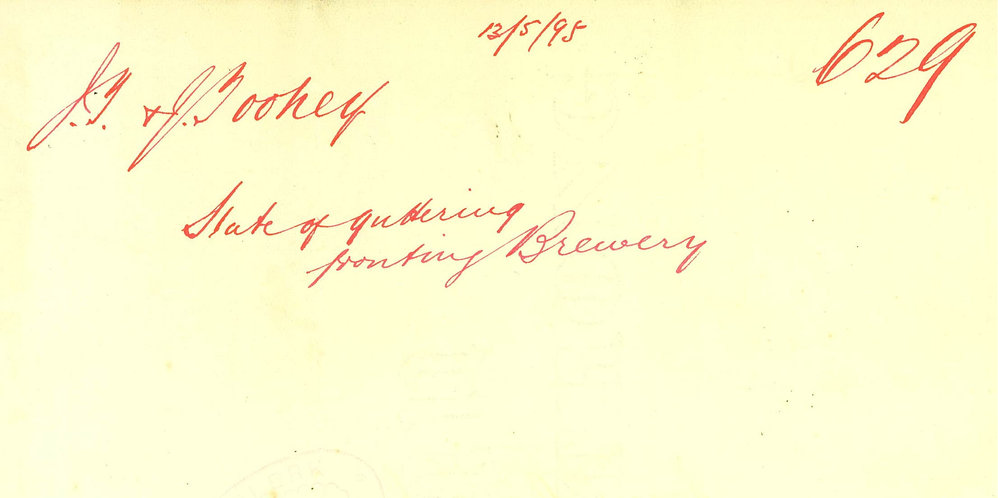 13/5/95
629
J.T. & J. Toohey
State of guttering
fronting Brewery